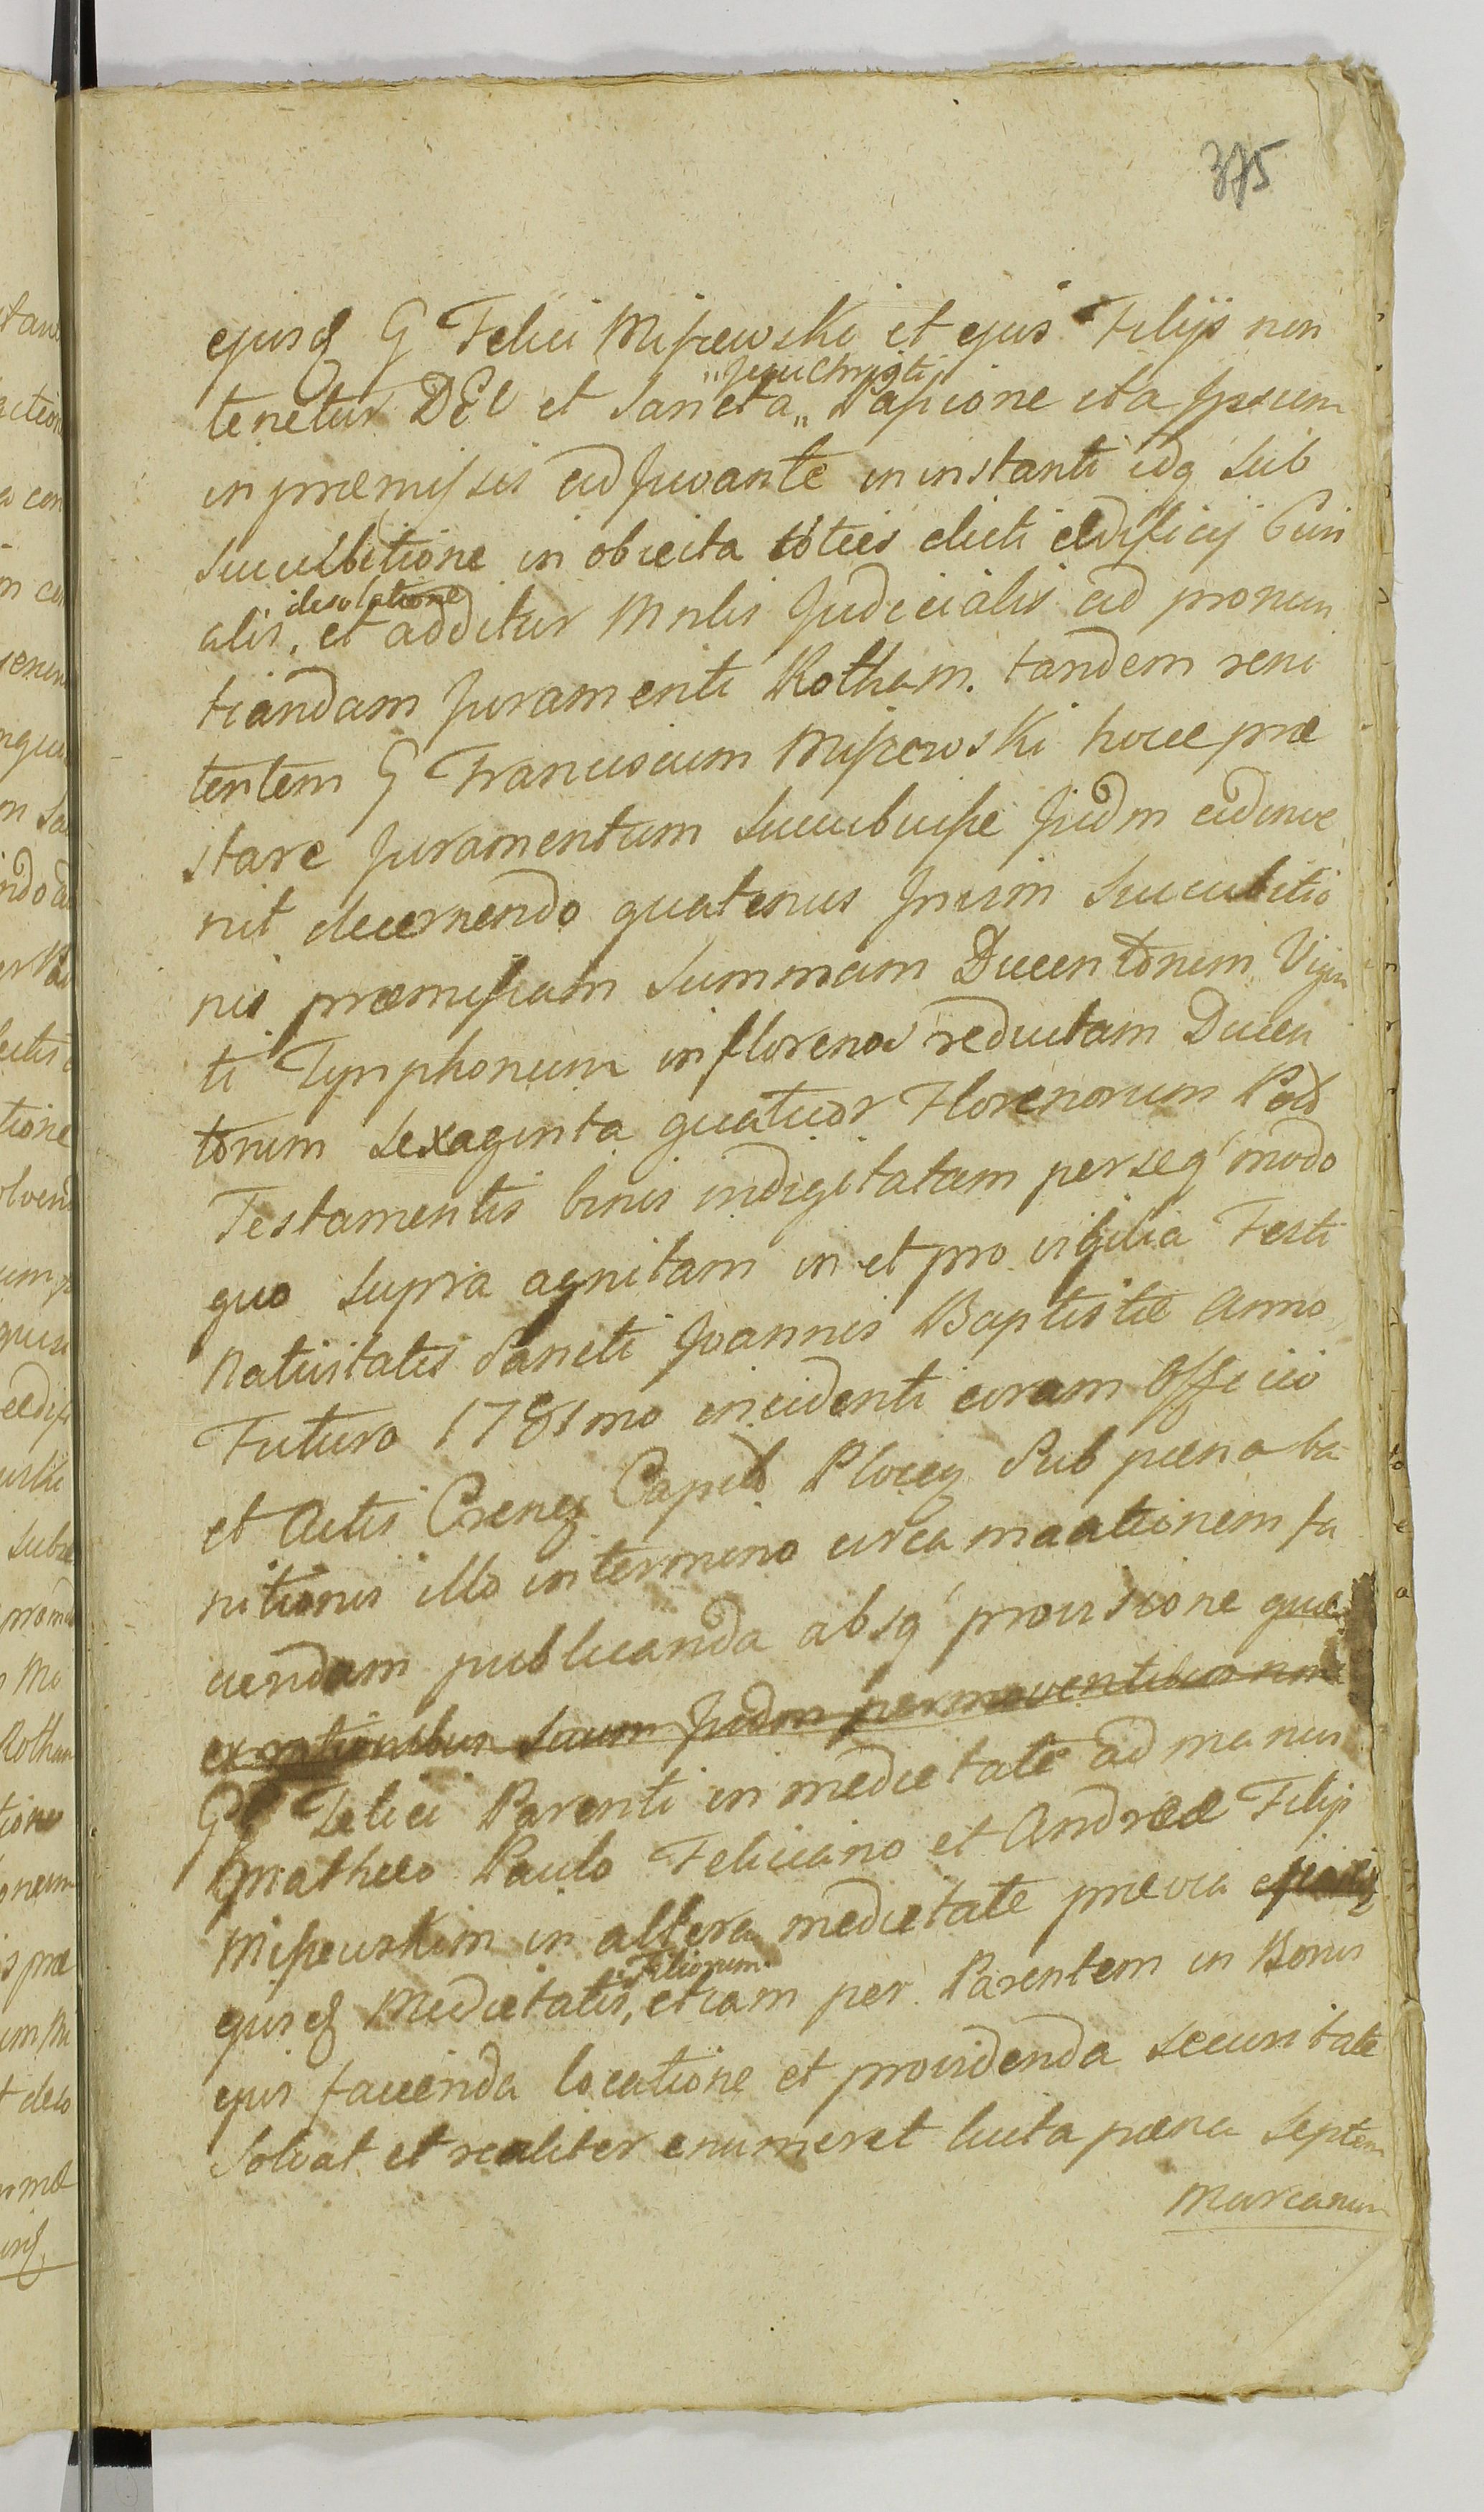 375
ejusq G Felici Miszewski et ejus Filijs non
"JesuChristi"
tenetur DEI et Sancta „ Passione ita Ipsum
in præmissis adjuvante in instanti idq sub
Succubitione in obiecta toties dicti ædificij Crin
desolatione
alis, et additur Mnlis Judicialis ad pronun
tiandam Juramenti Rotham. tandem reni
tentem G Franciscum Miszewski hocce præ
stare Juramentum Succubuisse Judm adinve
nit decernendo quatenus Succubitio
nis præmissam Summam Ducentorum Vigin
ti Tynphonum in florenos reductam Ducen
torum sexaginta quatuor Florenorum Pol
Testamentis binis indigitatam per seq modo
quo supra agnitam in et pro vigilia Festi
Nativitatis Sancti Joannis Baptistæ Anno
Futuro 1781mo incidenti coram Officio
et Actis Capit Plocen Sub pæna ba
nitionis illo in termino circa maationem fa
ciendam publicanda absq provisione quæ
ex rationibus suum Judm permoventibus non
G Felici Parenti in medietate ad manus
Matheo Paulo Feliciano et Andreæ Filijs
Miszewskim in altera medietate prævia
Filiorum
ejusq Medietatis, etiam per Parentem in Bonis
ejus facienda locatione et providenda securitate
Solvat et realiter enumeret lucta pæna Septem
Marcarum